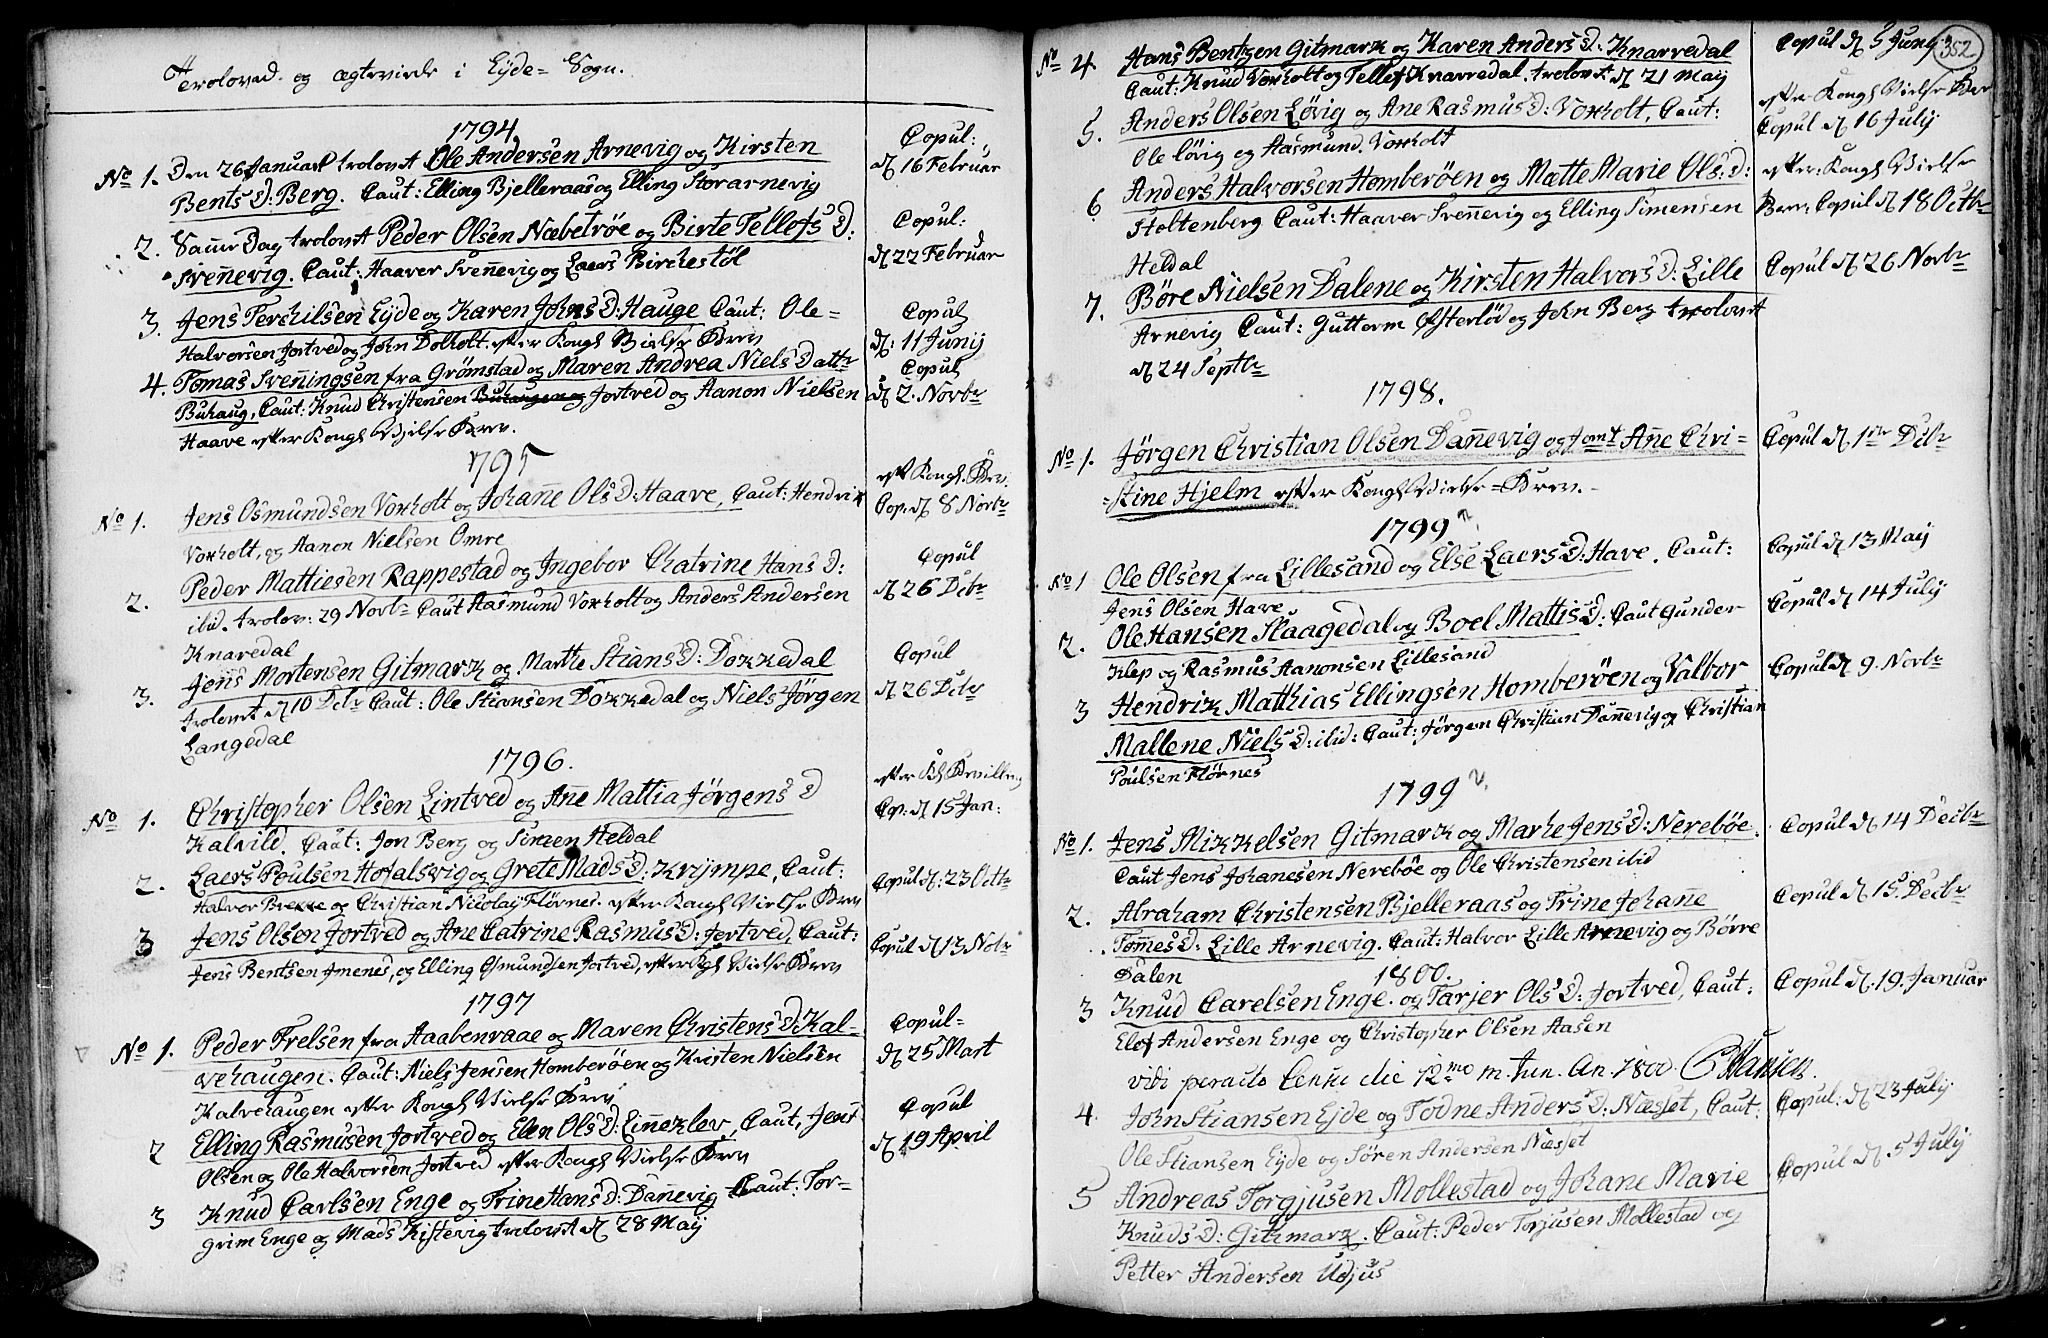 Trolovede og ægteviede i Eyde = Sogn.
1794
No 1. Den 26 Januar trolovt Ole Andersen Arnevig og Kirsten
Bents D: Berg. Caut: Elling Bjelleraas og Elling Storarnevig
Copul:
d 16 Februar
2. Samme Dag trolovet Peder Olsen Næbelrøe og Birte Tellefs D:
Svennevig. Caut: Haaver Svennevig og Laers Birchestøl
Copul:
d 22 Februar
3. Jens Terchilsen Eyde og Karen Johns D: Hauge Caut: Ole =
Halvorsen Jortved og John Dolholt efter Kongl Vielse Brev
Copul
d: 11 Junij
4. Tomas Svenningsen fra Grømstad og Maren Andrea Niels Datt
Buhaug, Caut: Knud Christensen Jortved og Aanon Nielsen
Haave efter Kongl Vjelse Brev.
Copul
d 2. Novbr
1795
No 1. Jens Osmundsen Voxholt og Johanne Ols D: Haave, Caut: Hendrik
Voxholt, og Aanon Nielsen Omre
eft Kongl. Brev.
Cop. d 8 Novbr
2. Peder Mattiesen Rappestad og Ingebor Chatrine Hans D:
ibid. trolov: 29 Novbr Caut Aasmund Voxholt og Anders Andersen
Knaredal
Copul
d 26 Dcbr
3. Jens Mortensen Gitmark og Marthe Stians D: Dokkedal
trolovet d 10 Dcbr Caut: Ole Stiansen Dokkedal og Niels Jörgen
Langedal
Copul
d 26 Dcbr
1796.
No 1. Christopher Olsen Lintved og Ane Mattia Jörgens D
Kalvild. Caut: Jon Berg og Simen Heldal
efter Kl Bevilling
Cop: d 15 Jan:
2. Laers Poulsen Hofalsvig og Grete Mads D: Krympe, Caut:
Halvor Brekke og Christian Nicolaij Flörnes. efter Kongl Vielse Brev
Copul d: 23 Octbr
3 Jens Olsen Jortved og Ane Catrine Rasmus D: Jortved, Caut:
Jens Bentsen Jmenes, og Elling Osmundsen Jortved, efter Kgl Vielse Brev
Copul d 13 Nobr
1797
No 1. Peder Frelsen fra Aabenraae og Maren Christens D: Kal-
vehaugen. Caut: Niels Jensen Homberöen og Kristen Nielsen
Kalvehaugen efter Kongl Vielse Brev
Copul =
d 25 Mart
2 Elling Rasmusen Jortved og Elen Ols D: Enneklev, Caut, Jens
Olsen og Ole Halvorsen Jortved efter Kongl Vielse Brev
Copul
d 19 April
3 Knud Carlsen Enge og Trine Hans D: Dannevig Caut: Tor-
grim Enge og Mads Kistevig trolovet d 28 Maij
352
No 4 Hans Bentzen Gitmark og Karen Anders D: Knarredal
Caut: Knud Voxholt og Tellef Knarredal. trolovt d 21 Maij
Copul d 5 Junij
5. Anders Olsen Lövig og Ane Rasmus D: Voxholt, Caut:
Ole Lövig og Aasmund Voxholt
efter Kongl Vielse Brev
Copul d 16 Julij
6 Anders Halvorsen Homberöen og Mætte Marie Ols: D:
Holtenberg Caut: Haaver Svennevig og Elling Simensen
Heldal
efter: Kongl Vielse
Brev: Copul d 18 Octbr
7. Böre Nielsen Dalene og Kirsten Halvors D: Lille
Arnevig Caut: Guttorm Østerlød og John Berg trolovet
d 24 Septbr
Copul d 26 Novbr
1798.
No 1. Jörgen Christian Olsen Dannevig og Jomf Ane Chri =
= stine Hjelm efter Kongl Vielse = Brev. -
Copul d 1ste Dcbr
1799
No 1 Ole Olsen fra Lillesand og Else Laers D: Have. Caut:
Jens Olsen Have
Copul d 13 Maij
2. Ole Hansen Skaagedal og Boel Mattis D: Caut Gunder
Klep og Rasmus Aanonsen Lillesand
Copul d 14 Julij
3 Hendrik Matthias Ellingsen Homberöen og Valbor
Mallene Niels D: ibid: Caut: Jörgen Christian Dannevig og Christian
Poulsen Flörnes
Copul d 9. Novbr
1799
No 1. Jens Mikkelsen Gitmark og Marhe Jens D: Nereböe.
Caut Jens Johanesen Nereböe og Ole Christensen ibid
Copul d 14 Decbr
2. Abraham Christensen Bjelleraas og Trine Johanne
Tomes D: Lille Arnevig. Caut: Halvor Lille Arnevig og Börre
Dalen
Copul d 15. Decbr
1800.
3 Knud Carelsen Enge. og Tarjer Ols D: Jortved, Caut:
Elef Andersen Enge og Christopher Olsen Aasen
Copul d. 19. Januar
vidi peracto Censu die 12mo m. Jun. An. 1800. Hansen.
4. John Stiansen Ejde og Todne Anders D: Næsset, Caut:
Ole Stiansen Eyde og Sören Andersen Næsset
Copul: d 23 Julij
5 Andreas Torgjusen Mollestad og Johane Marie
Knuds D: Gitmark. Caut: Peder Torjusen Mollestad og
Petter Andersen Udjus
Copul d. 5 Julij